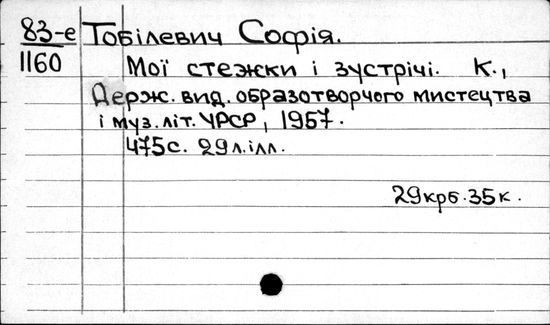 83-е Тобілевич Софія.
1160
Мої стежки і зустрічі. К.,
Держ. вид. образотворчого мистецтва
і муз. літ. УРСР, 1957.
475с. 29 л. ілл.
29 крб. 35 к.